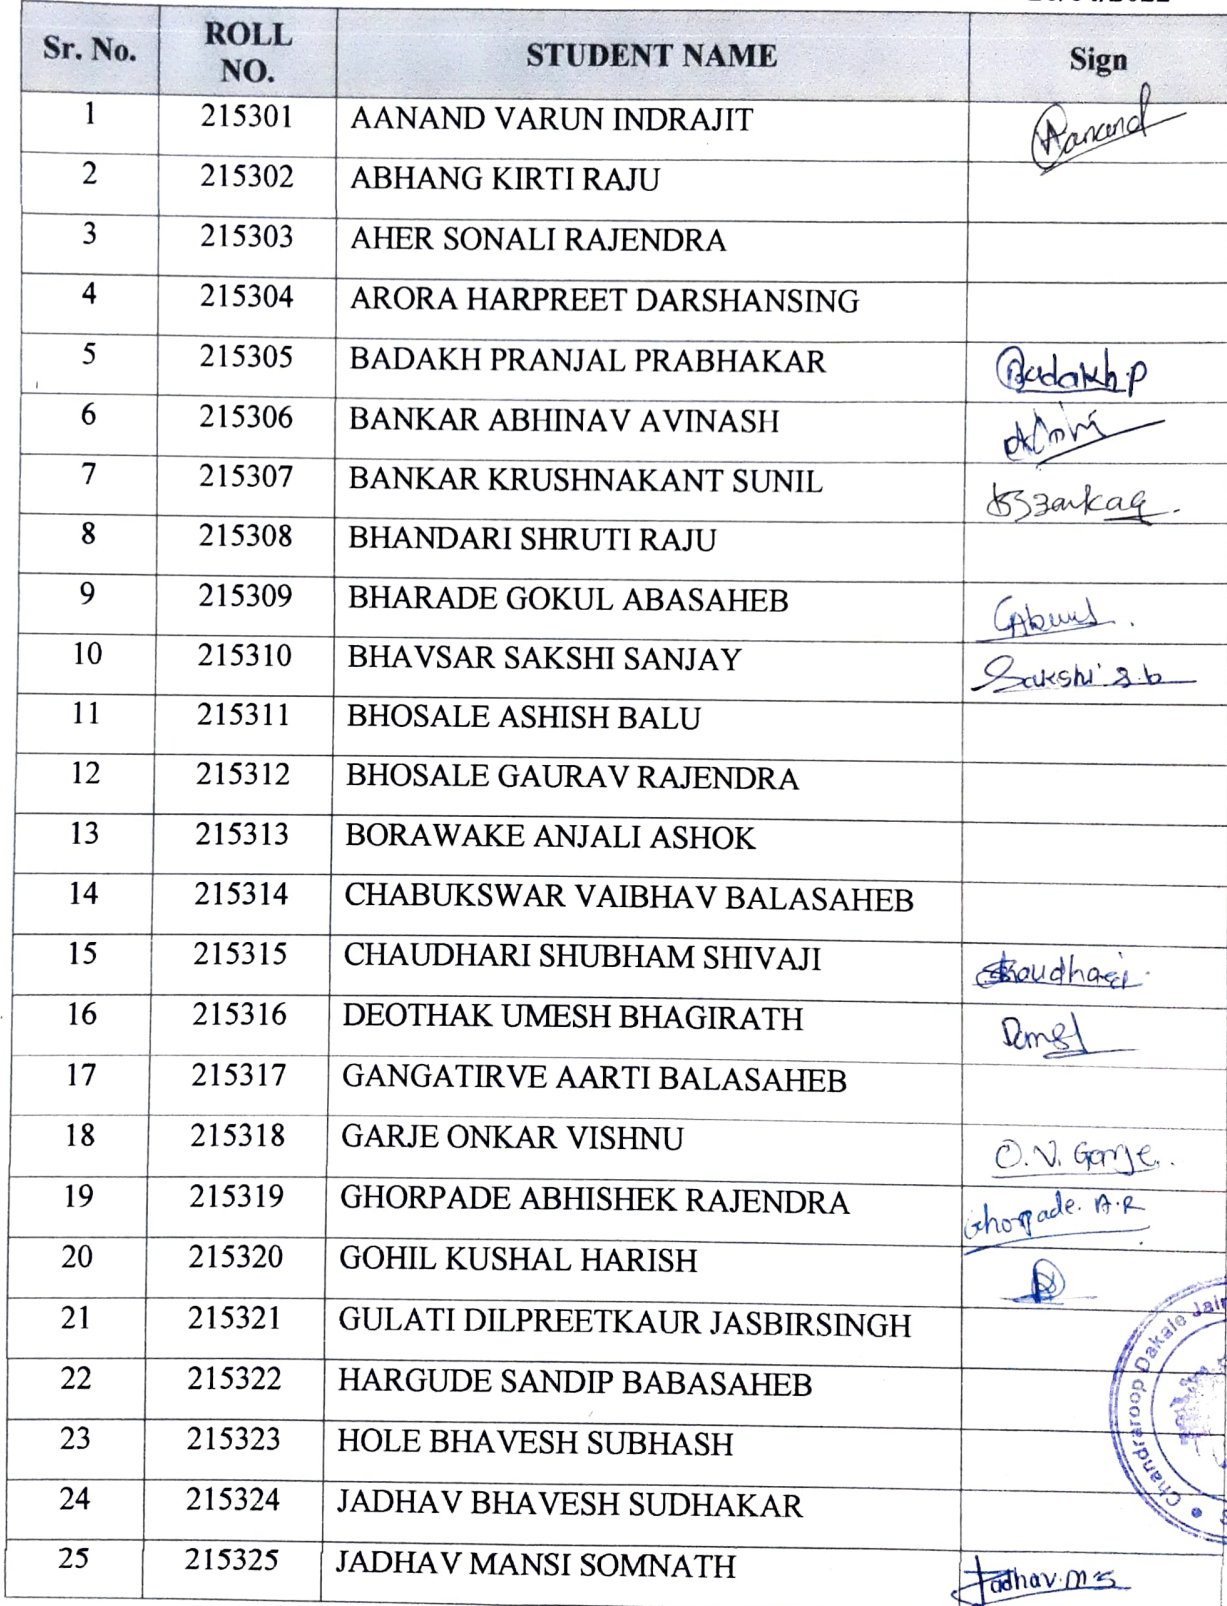 Sr. No. ROLL NO. STUDENT NAME Sign
1 215301 AANAND VARUN INDRAJIT Aanand
2 215302 ABHANG KIRTI RAJU
3 215303 AHER SONALI RAJENDRA
4 215304 ARORA HARPREET DARSHANSING
5 215305 BADAKH PRANJAL PRABHAKAR Badakh.P
6 215306 BANKAR ABHINAV AVINASH
7 215307 BANKAR KRUSHNAKANT SUNIL
8 215308 BHANDARI SHRUTI RAJU
9 215309 BHARADE GOKUL ABASAHEB
10 215310 BHAVSAR SAKSHI SANJAY Sakshi s.b
11 215311 BHOSALE ASHISH BALU
12 215312 BHOSALE GAURAV RAJENDRA
13 215313 BORAWAKE ANJALI ASHOK
14 215314 CHABUKSWAR VAIBHAV BALASAHEB
15 215315 CHAUDHARI SHUBHAM SHIVAJI
16 215316 DEOTHAK UMESH BHAGIRATH
17 215317 GANGATIRVE AARTI BALASAHEB
18 215318 GARJE ONKAR VISHNU O.V. Garje.
19 215319 GHORPADE ABHISHEK RAJENDRA Ghorpade. A.R
20 215320 GOHIL KUSHAL HARISH
21 215321 GULATI DILPREETKAUR JASBIRSINGH
22 215322 HARGUDE SANDIP BABASAHEB
23 215323 HOLE BHAVESH SUBHASH
24 215324 JADHAV BHAVESH SUDHAKAR
25 215325 JADHAV MANSI SOMNATH Jadhav.M.S
Chandraroop Dakale Jain